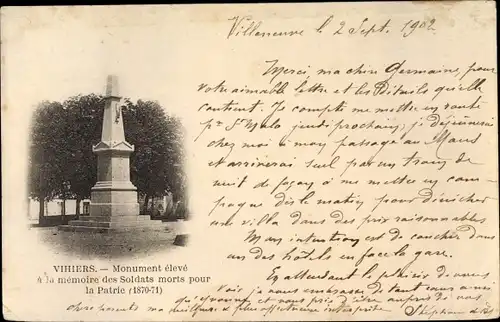 Villeneuve le 2 Sept. 1902
Merci, ma chère Germaine, pour
votre aimable lettre et les détails qu'elle
contient. Je compte me mettre en route
pr St Malo jeudi prochain, je déjeunerai
chez moi à mon passage au Mans
et arriverai seul par un train de
nuit de façon à me mettre en cam-
pagne dès le matin pour dénicher
une villa dans des prix raisonnables
Mon intention est de coucher dans
un des hôtels en face la gare.
En attendant le plaisir de vous
voir je vous embrasse de tout cœur ainsi
VIHIERS. — Monument élevé
à la mémoire des Soldats morts pour
la Patrie (1870-71)